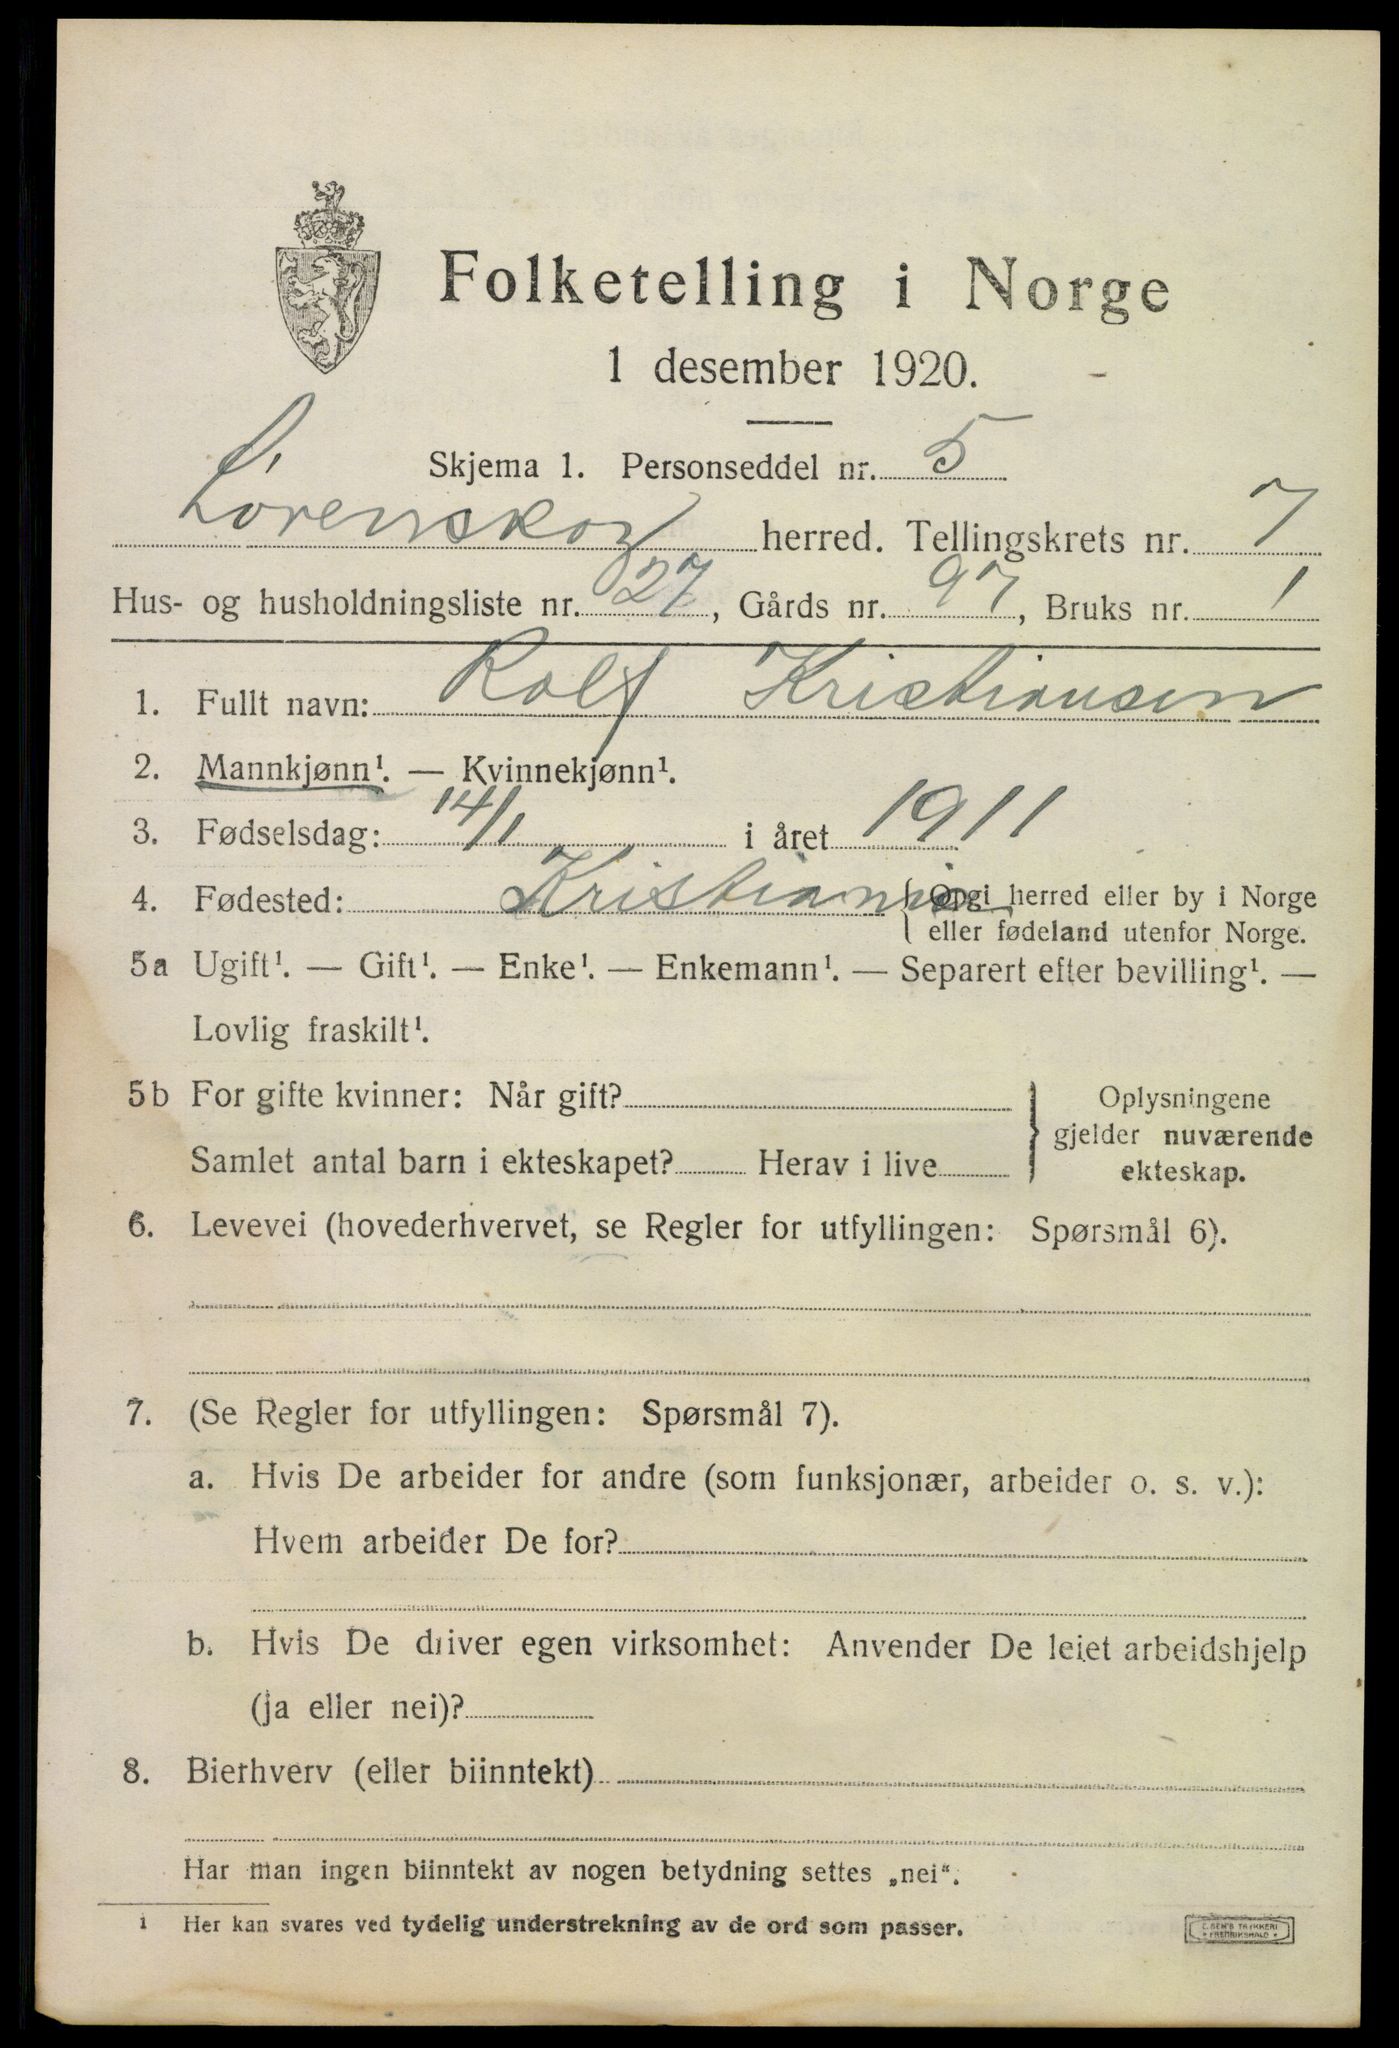 Folketelling i Norge
1 desember 1920.
Skjema 1. Personseddel nr. 5
Lørenskog herred. Tellingskrets nr. 7
Hus- og husholdningsliste nr. 27, Gårds nr. 97, Bruks nr. 1
1. Fullt navn: Rolf Kristiansen
2. Mannkjønn¹. — Kvinnekjønn¹.
3. Fødselsdag: 14/1 i året 1911
4. Fødested: Kristiania { Opgi herred eller by i Norge
eller fødeland utenfor Norge.
5a Ugift¹. — Gift¹. — Enke¹. — Enkemann¹. — Separert efter bevilling¹. —
Lovlig fraskilt¹.
5b For gifte kvinner: Når gift?
Samlet antal barn i ekteskapet? Herav i live
} Oplysningene
gjelder nuværende
ekteskap.
6. Levevei (hovederhvervet, se Regler for utfyllingen: Spørsmål 6).
7. (Se Regler for utfyllingen: Spørsmål 7).
a. Hvis De arbeider for andre (som funksjonær, arbeider o. s. v.):
Hvem arbeider De for?
b. Hvis De driver egen virksomhet: Anvender De leiet arbeidshjelp
(ja eller nei)?
8. Bierhverv (eller biinntekt)
Har man ingen biinntekt av nogen betydning settes „nei“.
1 Her kan svares ved tydelig understrekning av de ord som passer.
TRYKKERI
* FREDRIKSHALD *